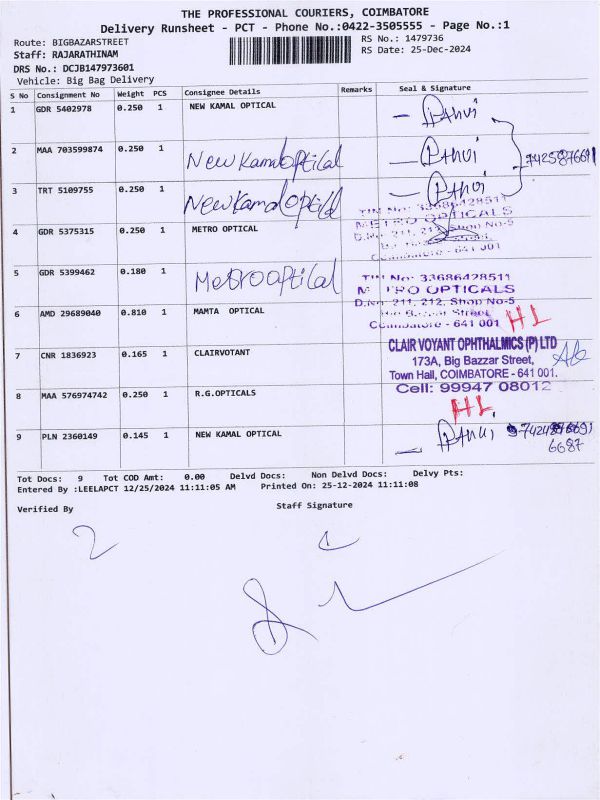 THE PROFESSIONAL COURIERS, COIMBATORE
Delivery Runsheet - PCT - Phone No.:0422-3505555 - Page No.:1
Route: BIGBAZARSTREET
RS No.: 1479736
Staff: RAJARATHINAM
RS Date: 25-Dec-2024
DRS No.: DCJB147973601
Vehicle: Big Bag Delivery
S No Consignment No Weight PCS Consignee Details Remarks Seal & Signature
1 GDR 5402978 0.250 1 NEW KAMAL OPTICAL
2 MAA 703599874 0.250 1 New Kamal optical
3 TRT 5109755 0.250 1 New Kamal optical
TIN No: 33686428511
METRO OPTICALS
D.No 211, 212, Shop No-5
Coimbatore - 641 001
4 GDR 5375315 0.250 1 METRO OPTICAL
5 GDR 5399462 0.180 1 Metro optical
TIN No: 33686428511
METRO OPTICALS
D.No 211, 212, Shop No-5
Big Bazzar Street
Coimbatore - 641 001
6 AMD 29689040 0.810 1 MAMTA OPTICAL HL
7 CNR 1836923 0.165 1 CLAIRVOTANT
CLAIR VOYANT OPHTHALMICS (P) LTD
173A, Big Bazzar Street,
Town Hall, COIMBATORE - 641 001.
Cell: 99947 08012
8 MAA 576974742 0.250 1 R.G.OPTICALS HL
9 PLN 2360149 0.145 1 NEW KAMAL OPTICAL
6687
Tot Docs: 9 Tot COD Amt: 0.00 Delvd Docs: Non Delvd Docs: Delvy Pts:
Entered By :LEELAPCT 12/25/2024 11:11:05 AM Printed On: 25-12-2024 11:11:08
Verified By Staff Signature